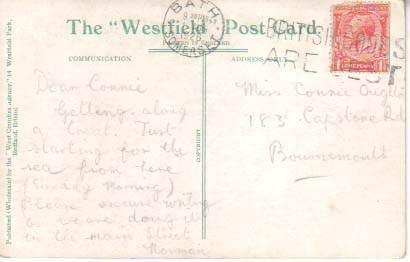 The "Westfield" Post Card.
BATH
SOMERSET
BRITISH GOODS
ARE BEST
COMMUNICATION.
ADDRESS ONLY.
Dear Connie
Getting along
a treat. Just
starting for the
sea from here
(Sunday Morning)
Please excuse writing
as we are doing it
in the main Street
Norman
Miss Connie
183 Capstone Rd
Bournemouth
COPYRIGHT
Published (Wholesale) by the "West Counties Agency," 14 Westfield Park,
Redland, Bristol.